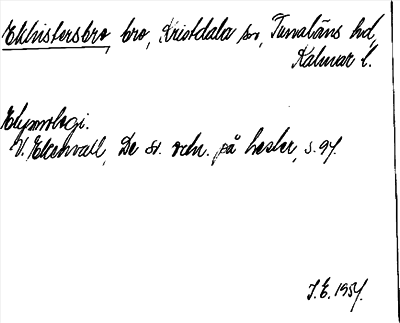 Ekhistersbro, bro, Kristdala sn, Tunaläns hd,
Kalmar l.
Etymologi.
V. Ekenvall, De sv. ordn. på hester, s. 97.
J.E. 1957.